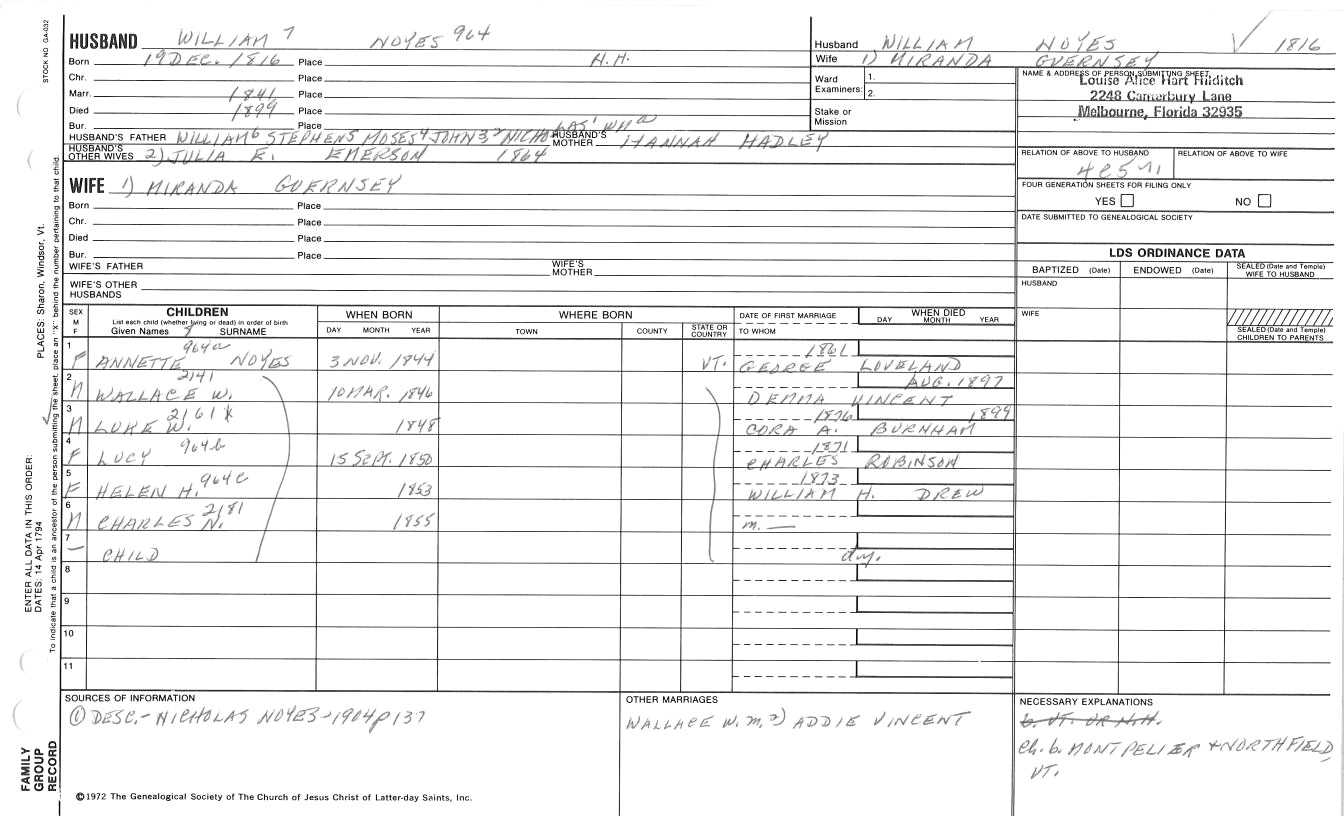 STOCK NO. GA-032
HUSBAND WILLIAM 7 NOYES 964
Born 19 DEC. 1816 Place N.H.
Chr. Place
Marr. 1841 Place
Died 1899 Place
Bur. Place
HUSBAND'S FATHER WILLIAM6 STEPHEN5 MOSES4 JOHN3 2 NICHOLAS1 WMa HUSBAND'S MOTHER HANNAH HADLEY
HUSBAND'S OTHER WIVES 2) JULIA E. EMERSON 1864
WIFE 1) MIRANDA GUERNSEY
Born Place
Chr. Place
Died Place
Bur. Place
WIFE'S FATHER WIFE'S MOTHER
WIFE'S OTHER HUSBANDS
Husband WILLIAM NOYES √ 1816
Wife 1) MIRANDA GUERNSEY
Ward Examiners: 1.
2.
Stake or Mission
NAME & ADDRESS OF PERSON SUBMITTING SHEET
Louise Alice Hart Hilditch
2248 Canterbury Lane
Melbourne, Florida 32935
RELATION OF ABOVE TO HUSBAND RELATION OF ABOVE TO WIFE
4C5R
FOUR GENERATION SHEETS FOR FILING ONLY
YES NO
DATE SUBMITTED TO GENEALOGICAL SOCIETY
LDS ORDINANCE DATA
BAPTIZED (Date) ENDOWED (Date) SEALED (Date and Temple) WIFE TO HUSBAND
HUSBAND
WIFE
SEALED (Date and Temple) CHILDREN TO PARENTS
SEX M F CHILDREN WHEN BORN WHERE BORN DATE OF FIRST MARRIAGE WHEN DIED
List each child (whether living or dead) in order of birth
Given Names SURNAME DAY MONTH YEAR TOWN COUNTY STATE OR COUNTRY TO WHOM DAY MONTH YEAR
1 964a 1861
F ANNETTE NOYES 3 NOV. 1844 VT. GEORGE LOVELAND
2 2141 AUG. 1897
M WALLACE W. 10 MAR. 1846 DEMMA VINCENT
3 2161 X 1876 1899
M LUKE W. 1848 CORA A. BURNHAM
4 964b 1871
F LUCY 15 SEPT. 1850 CHARLES ROBINSON
5 964c 1873
F HELEN H. 1853 WILLIAM H. DREW
6 2181
M CHARLES N. 1855 m. —
7
— CHILD d.y.
8
9
10
11
SOURCES OF INFORMATION
① DESC.- NICHOLAS NOYES-1904 p 137
OTHER MARRIAGES
WALLACE W. m. 2) ADDIE VINCENT
NECESSARY EXPLANATIONS
b. VT. OR N.H.
Ch. b. MONTPELIER + NORTHFIELD, VT.
©1972 The Genealogical Society of The Church of Jesus Christ of Latter-day Saints, Inc.
FAMILY GROUP RECORD
ENTER ALL DATA IN THIS ORDER:
DATES: 14 Apr 1794 PLACES: Sharon, Windsor, Vt.
To indicate that a child is an ancestor of the person submitting the sheet, place an "X" behind the number pertaining to that child.